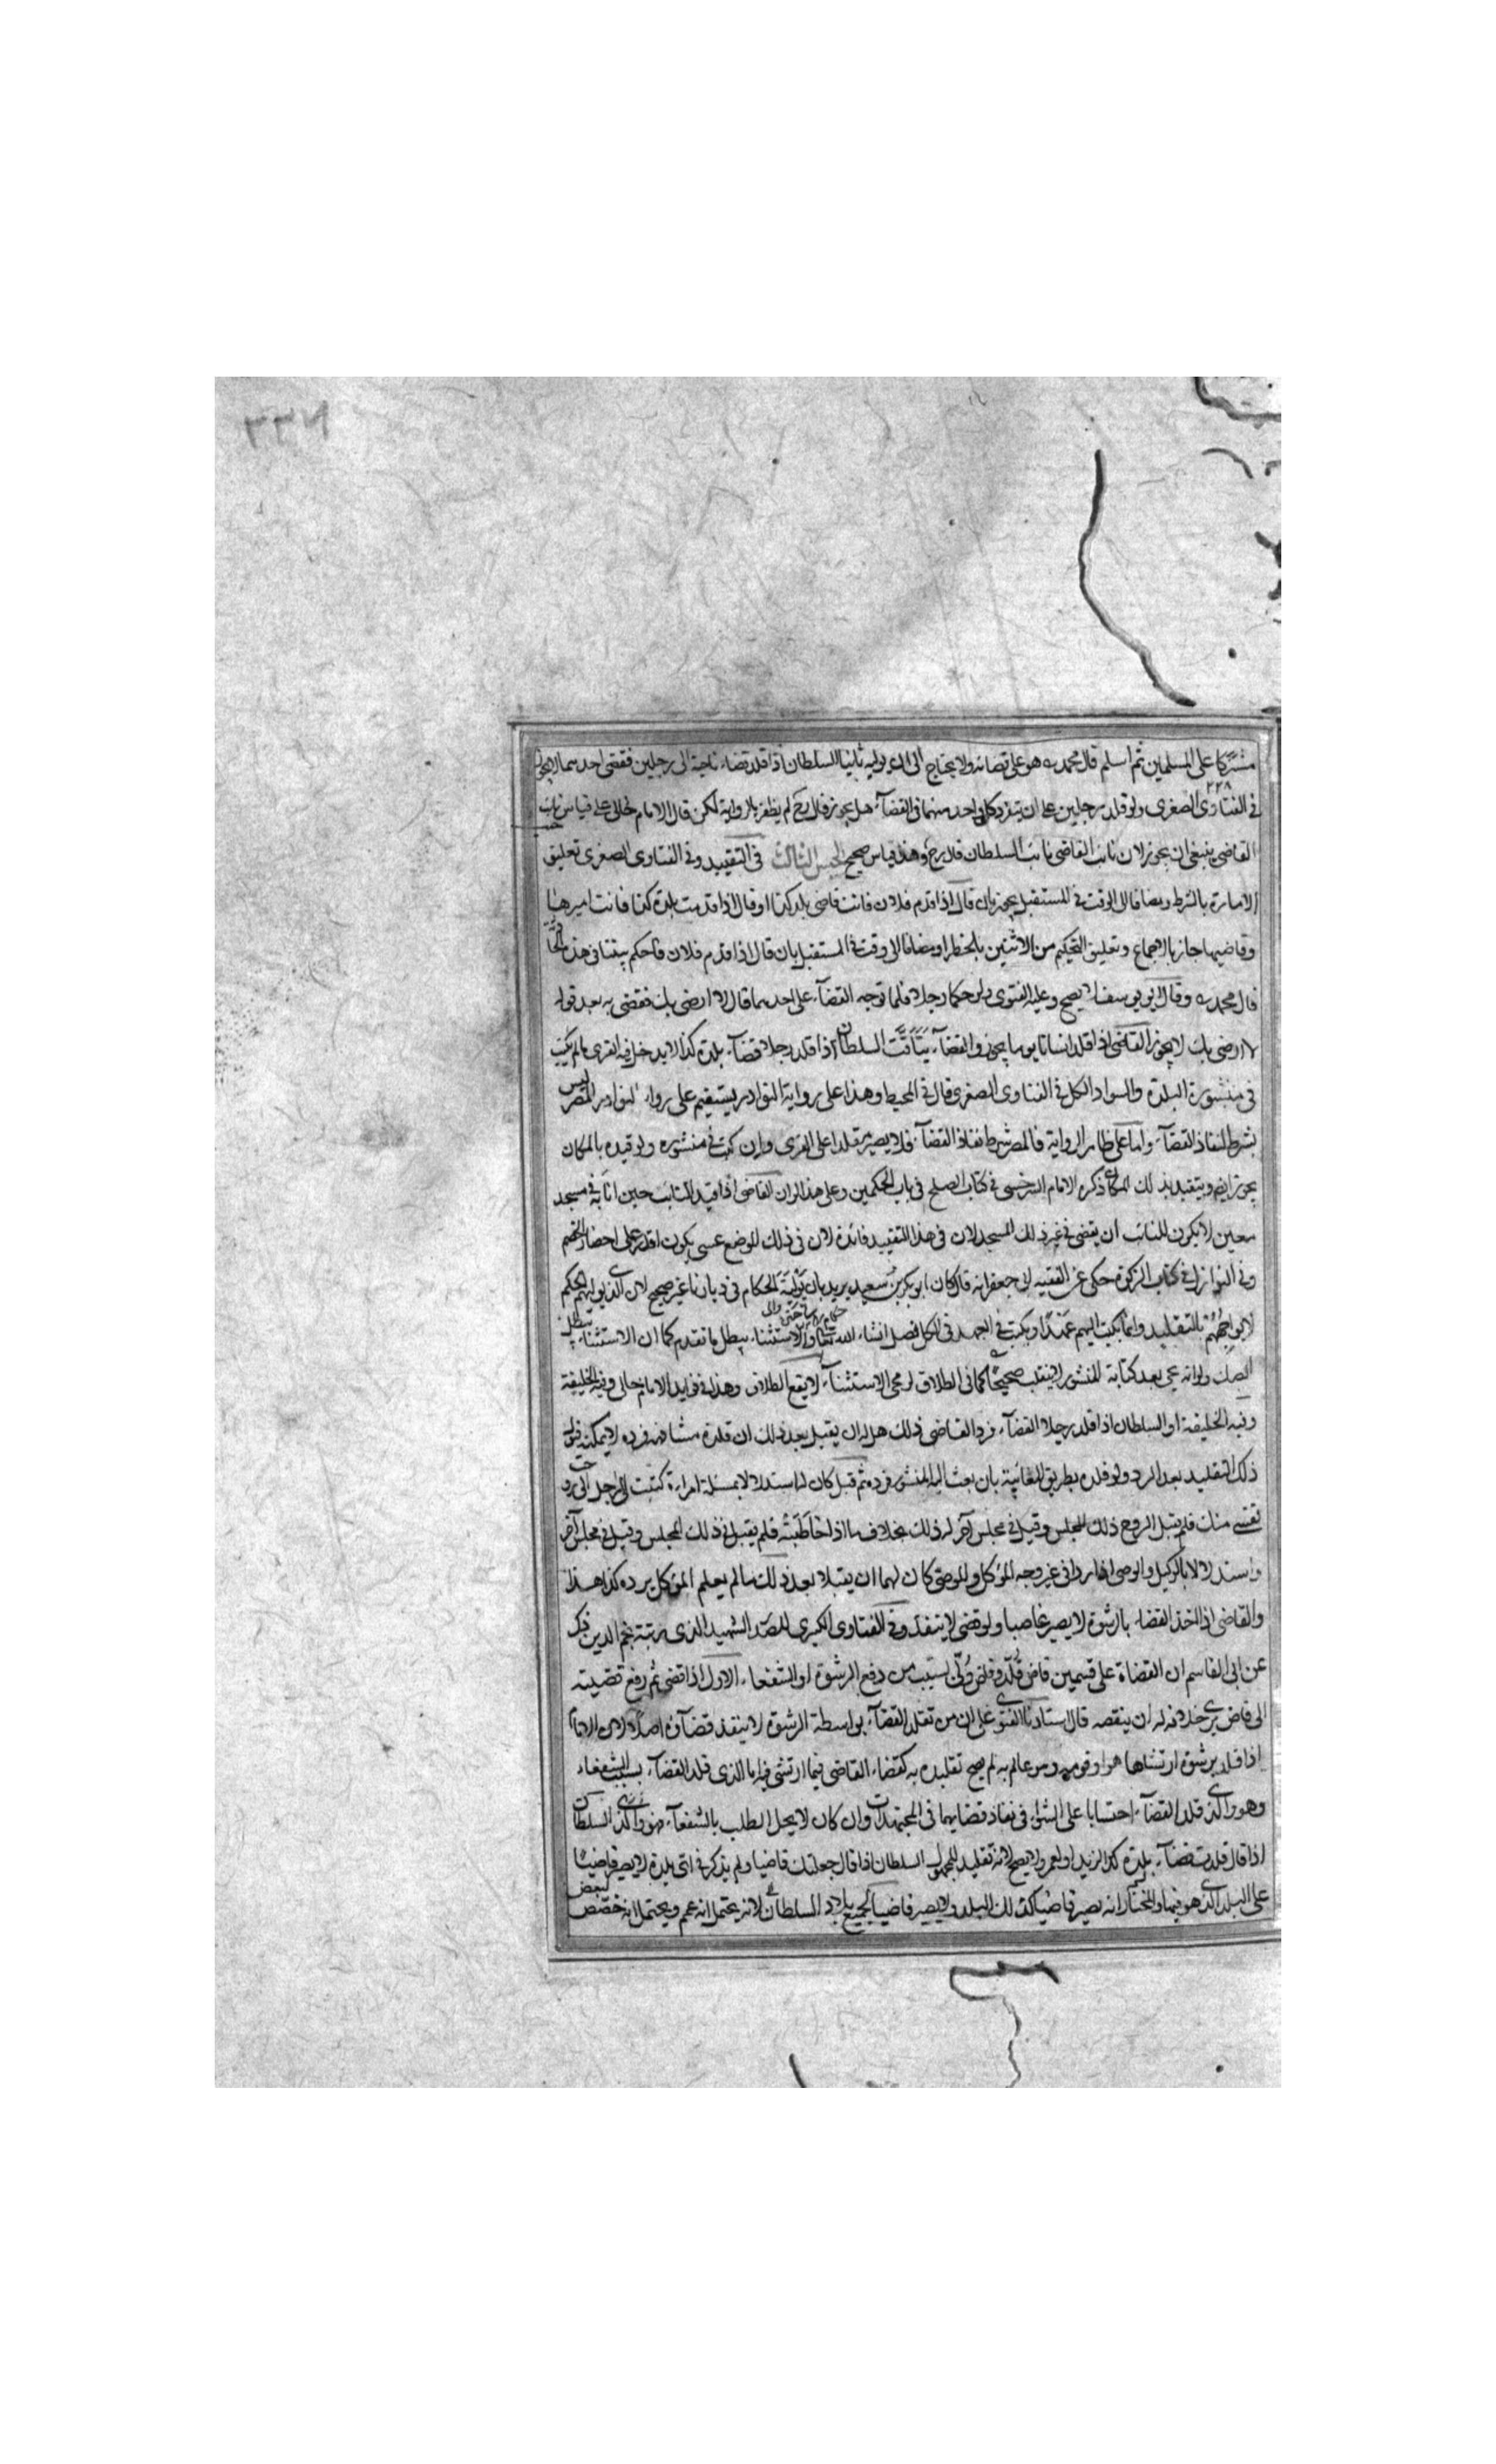 مشتركا على المسلمين ثم اسلم قال محمد ره هو على قضائه ولا يحتاج الى ان يوليه ثانيا السلطان اذا قلد قضاء ناحية الى رجلين فقضى احدهما لا يجوز
٢٢٨
في الفتاوى الصغرى ولو قلد رجلين على ان يتفرد كل واحد منهما في القضاء هل يجوز قال رح لم يظفر بالرواية لكن قال الامام خالى على قياس نايب
القاضى ينبغى ان يجوز لان نائب القاضى نائب السلطان قال رح وهذا قياس صحيح الجنس الثالث في التقييد وفي الفتاوى الصغرى تعليق
الامارة بالشرط ومضافا الى الوقت في المستقبل يجوز بان قال اذا قدم فلان فانت قاضى بلد كذا او قال اذا قدمت بلدة كذا فانت اميرها
وقاضيها جاز بالاجماع وتعليق التحكيم من الاثنين بالخطر او مضافا الى وقت في المستقبل بان قال اذا قدم فلان فاحكم بيننا في هذه
قال محمد ره وقال ابو يوسف لا يصح وعليه الفتوى ولو حكما رجلا فلما توجه القضاء على احدهما قال لا ارضى بك فقضى به بعد قوله
لا ارضى بك لا يجوز القاضى اذا قلد انسانا يوما يجوز والقضاء يتأقت السلطان اذا قلد رجلا قضاء بلدة كذا لا يدخل فيه القرى ما لم يكتب
في منشوره البلدة والسواد الكل في الفتاوى الصغرى قال في المحيط وهذا على رواية النوادر يستقيم على رواية النوادر المصر ليس
بشرط لنفاذ القضاء واما على ظاهر الرواية فالمصر شرط نفاذ القضاء فلا يصير مقلدا على القرى وان كتب في منشوره ولو قيده بالمكان
يجوز ايضا ويتقيد بذلك المكان ذكره الامام السرخسى في كتاب الصلح في باب الحكمين وعلى هذا لو ان القاضى اذا قيد النائب حين انابه في مسجد
معين لا يكون للنائب ان يقضى في غير ذلك المسجد لان في هذا التقييد فائدة لان في ذلك الموضع عسى يكون اقدر على احضار الخصم
وفي النوازل في كتاب الزكوة حكى عن الفقيه ابى جعفر انه قال كان ابو بكر بن سعيد يريد بان تولية الحكام في ديارنا غير صحيح لان الذى يوليهم الحكم
لا يواجههم بالتقليد وانما يكتب اليهم عهدا ويكتب في العهد في الكل فصل ان شاء الله تعالى والاستثناء يبطل ما تقدم كما ان الاستثناء يبطل
الصك ولو انه محى بعد كتابة المنشور لا ينقلب صحيحا كما في الطلاق لو محى الاستثناء لا يقع الطلاق وهذا في فوايد الامام خالى وفيه الخليفة
وفيه الخليفة او السلطان اذا قلد رجلا القضاء فرد القاضى ذلك هل له ان يقبل بعد ذلك ان قلده مشافهة فرده لا يمكنه قبول
ذلك التقليد بعد الرد ولو قلده بطريق المغايبة بان بعث اليه المنشور فرده ثم قبل كان له استدلالا بمسئلة امراة كتبت الى رجل انى زوجت
نفسى منك فلم يقبل الزوج ذلك المجلس وقبل في مجلس آخر له ذلك بخلاف ما اذا خاطبته فلم يقبل في ذلك المجلس وقبل في مجلس آخر
واستدلالا بالوكيل والوصى اذا ردا في غير وجه الموكل والموصى كان لهما ان يقبلا بعد ذلك ما لم يعلم الموكل برده كذا هذا
والقاضى اذا اخذ القضاء بالرشوة لا يصير قاضيا ولو قضى لا ينفذ وفي الفتاوى الكبرى للصدر الشهيد الذى رتبه نجم الدين ذكر
عن ابى القاسم ان القضاة على قسمين قاض قلد وقاض ولى بسبب من دفع الرشوة او الشفعاء الاول اذا قضى ثم رفع قضيته
الى قاض يرى خلافه له ان ينقضه قال استادنا الفتوى على ان من تقلد القضاء بواسطة الرشوة لا ينفذ قضاؤه اصلا لان الامام
اذا قلد برشوة ارتشاها هو او قومه وهو عالم به لم يصح تقليده به كقضاء القاضى فيما ارتشى فيه اما الذى قلد القضاء بسبب الشفعاء
وهو والذى قلد القضاء احتسابا على السواء في نفاذ قضاياهما في المجتهدات وان كان لا يحل الطلب بالشفعاء فهو والذى السلطان
اذا قال قلدت قضاء بلدة كذا لزيد او لعمرو لا يصح لانه تقليد للمجهول السلطان اذا قال جعلتك قاضيا ولم يذكر في اى بلدة لا يصير قاضيا
على البلد الذى هو فيها والمختار انه يصير قاضيا لذلك البلد ولا يصير قاضيا لجميع بلاد السلطان لانه يحتمل انه عم ويحتمل انه خصص لبعض